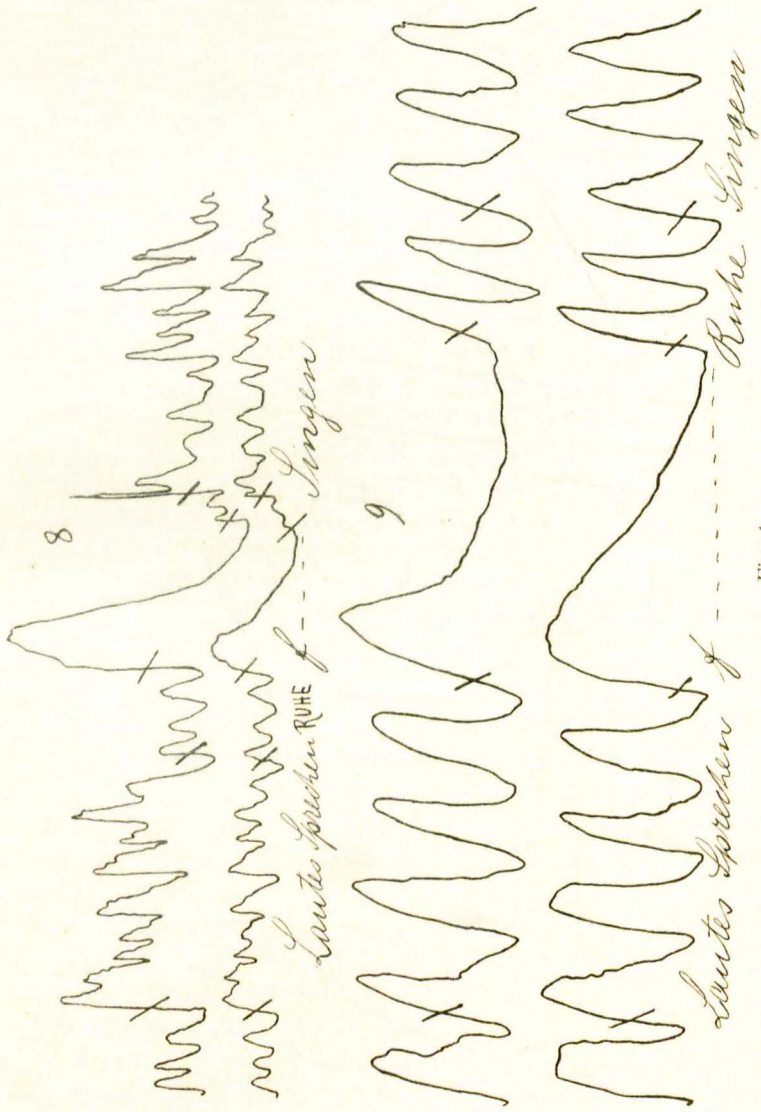 8
Lautes Sprechen RUHE f - - - - Singen
9
Lautes Sprechen f - - - - - - - - - Ruhe Singen